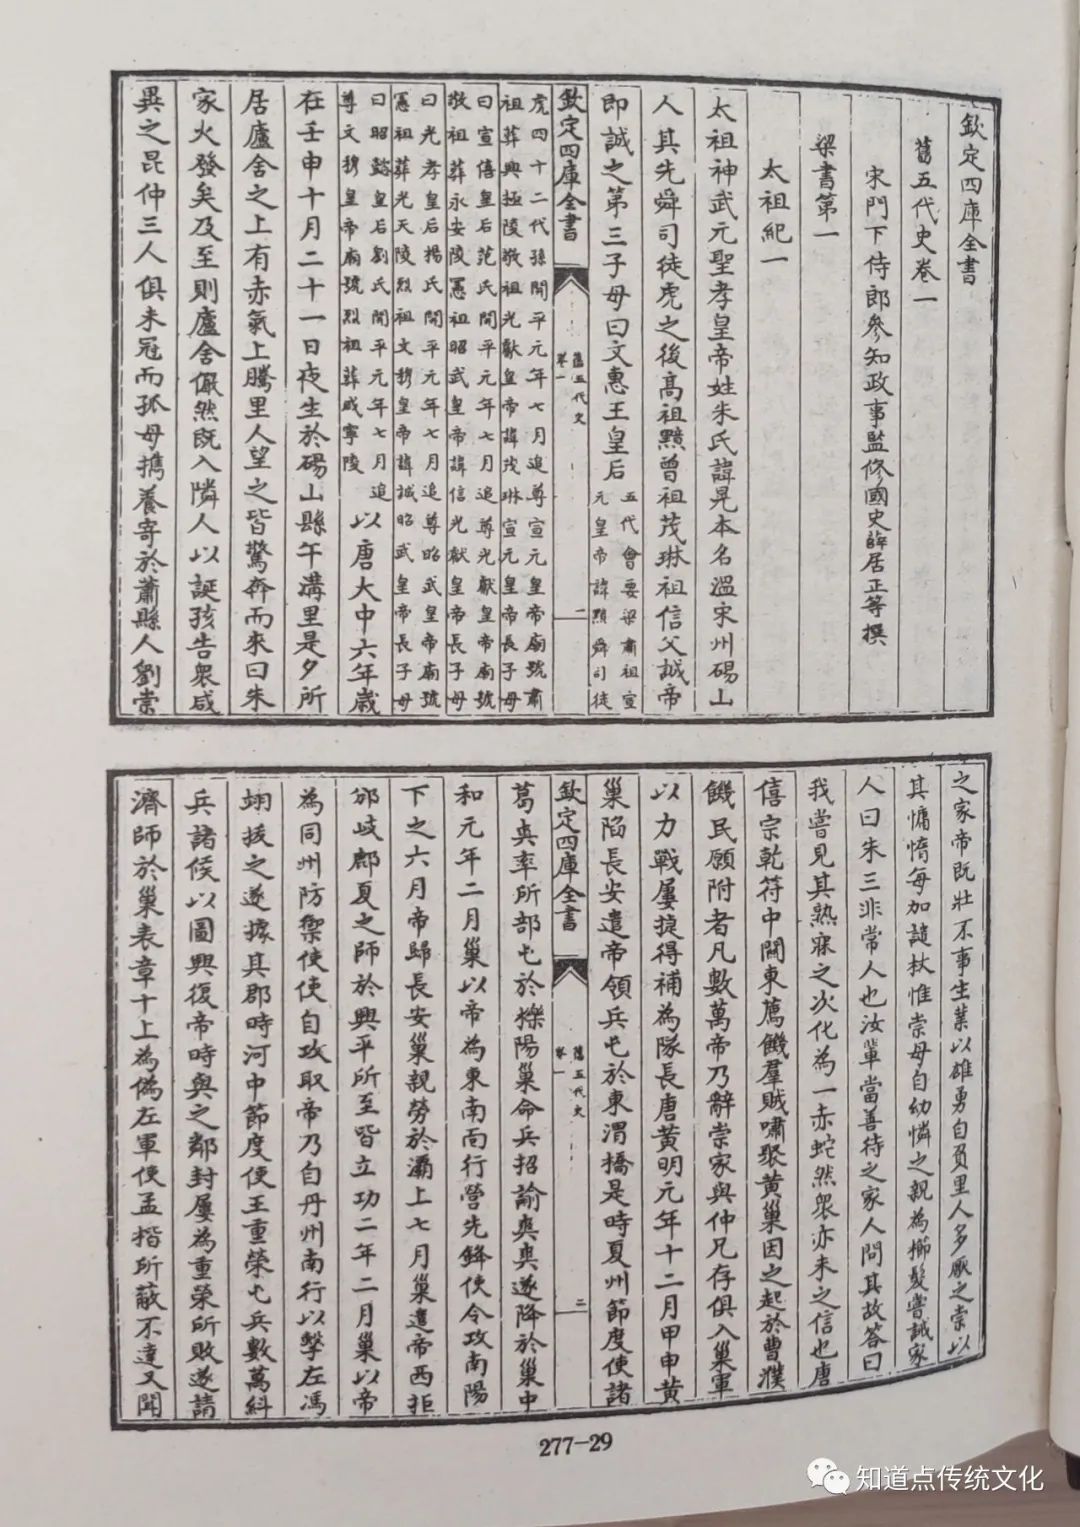 欽定四庫全書
舊五代史卷一
宋門下侍郎參知政事監修國史薛居正等撰
梁書第一
太祖紀一
太祖神武元聖孝皇帝姓朱氏諱晃本名溫宋州碭山
人其先舜司徒虎之後高祖黯曾祖茂琳祖信父誠帝
即誠之第三子母曰文惠王皇后
五代會要梁肅祖宣
元皇帝諱黯舜司徒
欽定四庫全書
舊五代史
卷一
一
虎四十二代孫開平元年七月追尊宣元皇帝廟號肅
祖葬興極陵敬祖光獻皇帝諱茂琳宣元皇帝長子母
曰宣僖皇后范氏開平元年七月追尊光獻皇帝廟號
敬祖葬永安陵憲祖昭武皇帝諱信光獻皇帝長子母
曰光孝皇后楊氏開平元年七月追尊昭武皇帝廟號
憲祖葬光天陵烈祖文穆皇帝諱誠昭武皇帝長子母
曰昭懿皇后劉氏開平元年七月追
尊文穆皇帝廟號烈祖葬咸寧陵
以唐大中六年歲
在壬申十月二十一日夜生於碭山縣午溝里是夕所
居廬舍之上有赤氣上騰里人望之皆驚奔而來曰朱
家火發矣及至則廬舍儼然既入隣人以誕孩告衆咸
異之昆仲三人俱未冠而孤母攜養寄於蕭縣人劉崇
之家帝既壯不事生業以雄勇自負里人多厭之崇以
其慵惰每加譴杖惟崇母自幼憐之親為櫛髮嘗誡家
人曰朱三非常人也汝輩當善待之家人問其故答曰
我嘗見其熟寐之次化為一赤蛇然衆亦未之信也唐
僖宗乾符中關東薦饑羣賊嘯聚黃巢因之起於曹濮
饑民願附者凡數萬帝乃辭崇家與仲兄存俱入巢軍
以力戰屢捷得補為隊長唐黃明元年十二月甲申黃
巢陷長安遣帝領兵屯於東渭橋是時夏州節度使諸
欽定四庫全書
舊五代史
卷一
二
葛爽率所部屯於櫟陽巢命兵招諭爽爽遂降於巢中
和元年二月巢以帝為東南面行營先鋒使令攻南陽
下之六月帝歸長安巢親勞於灞上七月巢遣帝西拒
邠岐鄜夏之師於興平所至皆立功二年二月巢以帝
為同州防禦使使自攻取帝乃自丹州南行以擊左馮
翊拔之遂據其郡時河中節度使王重榮屯兵數萬糾
兵諸侯以圖興復帝時與之鄰封屢為重榮所敗遂請
濟師於巢表章十上為偽左軍使孟揩所蔽不達又聞
277-29
知道点传统文化